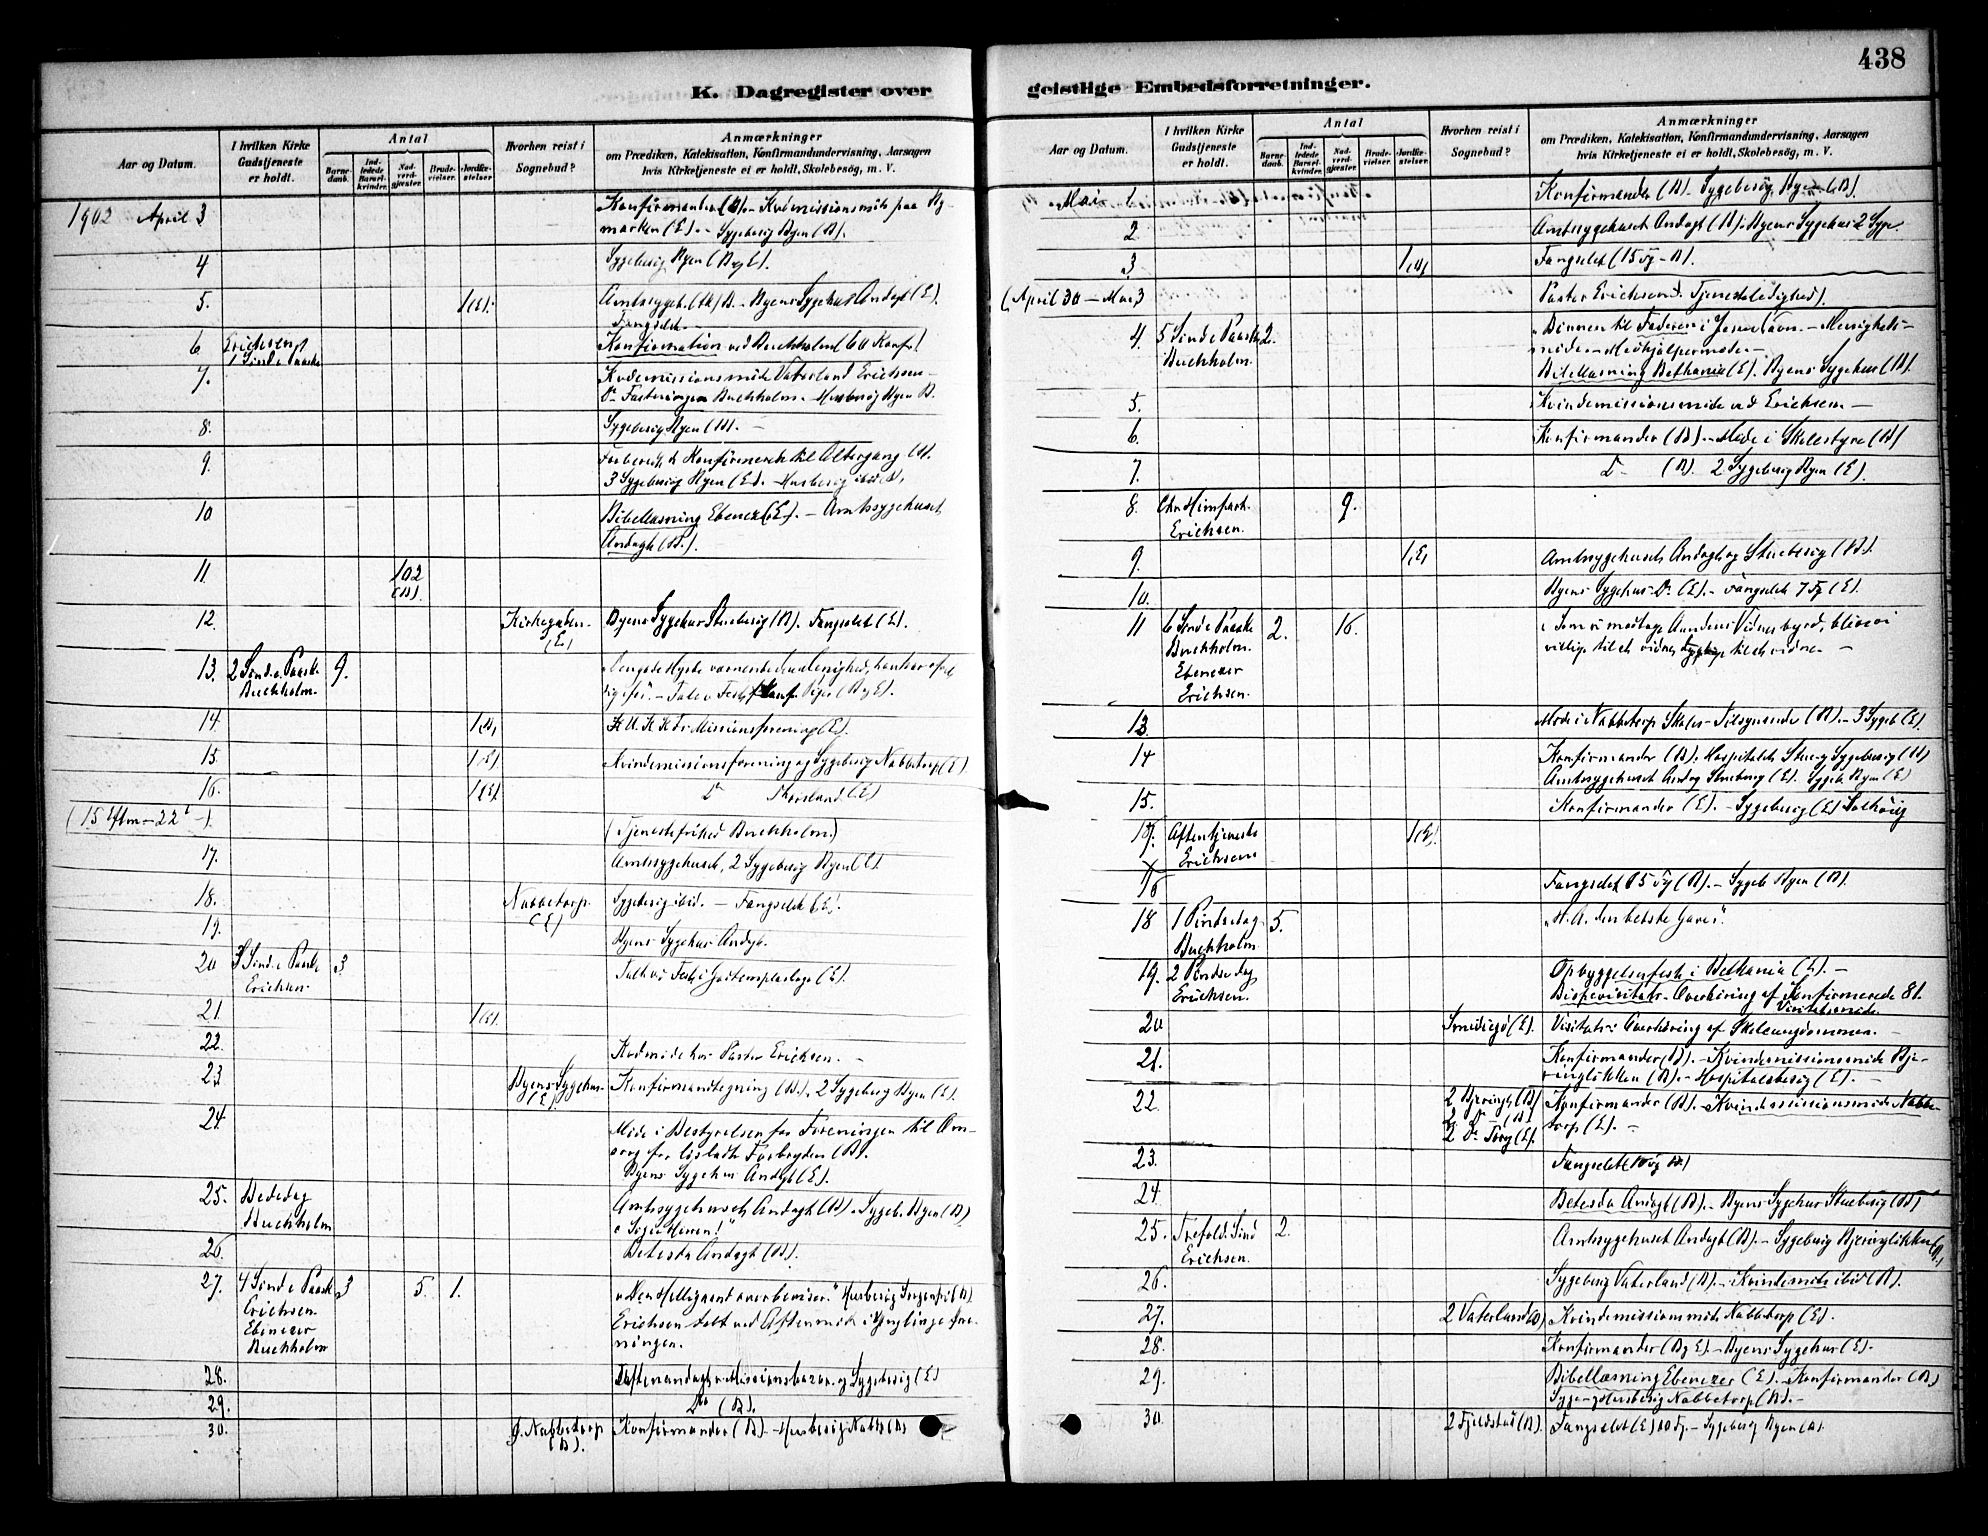 438
K. Dagregister over
Aar og Datum.
I hvilken Kirke Gudstjeneste er holdt.
Antal
Barnedaab.
Indledede Barselkvinder.
Nadverdgjæster.
Brudevielser.
Jordfæstelser.
Hvorhen reist i Sognebud?
Anmærkninger
om Prædiken, Katekisation, Konfirmandundervisning, Aarsagen
hvis Kirketjeneste ei er holdt, Skolebesög, m. V.
1902 April 3
Konfirmander (B). Kvdmissionsmöte paa By-
marken (E). - Sygebesög Byen (B).
4
Sygebesög Byen (B og E).
5.
1 (E).
Amtssygeh. B. - Byens Sygehus Andagt (E).
Fængselet.
6. Erichsen
1 Sönd. e. Paaske
Konfirmation ved Buchholm (60 Konf.)
7.
Kvdemissionsmöde Vaterland Erichsen -
Do Foreningen Buchholm. - Husbesög Byen B.
8.
Sygebesög Byen (B). -
9.
Konfirmerede til Altergang (B).
3 Sygebesög Byen (E). - Husbesög ibid B.
10
Bibellæsning Ebenezer (E). - Amtssygehuset
Andagt (B).
11.
102
(B).
12.
Kirkegaden
(E)
Byens Sygehus Stuebesög (B). Fængselet (E).
13. 2 Sönd. e. Paaske
Buchholm.
9.
14.
1 (B)
K U K K Fs Missionsforening (E).
15.
1 (B)
Kvindemissionsforening og Sygebesög Nabbetorp (E).
16.
1 (E).
Do Thorsland (E)
(15 Eftm - 22 -).
(Tjenestefrihed Buchholm)
17.
Amtssygehuset, 2 Sygebesög Byen (E).
18.
Nabbetorp.
(E)
Sygebesög ibid. - Fængselet (E).
19.
Byens Sygehus Andagt.
20 3 Sönd. e. Paaske
Erichsen.
3.
Talt ved Fest i Godtemplarloge (E).
21
1 (E).
22.
Kvdmöde hos Pastor Erichsen. -
23
Byens Sygehus
(E)
Konfirmandtegning (B). 2 Sygebesög Byen (E).
24.
Möde i Bestyrelsen for Foreningen til Om-
sorg for lösladte Forbrydere (B).
Byens Sygehus Andagt (E).
25. Bededag
Buchholm
Amtssygehusets Andagt (B). Sygeb. Byen (B)
"Söger Herren!"
26.
Betesda Andagt (B).
27. 4 Sönd. e. Paaske
Erichsen
Ebenezer
Buchholm
3
5.
1.
"Den Helligaand overbeviser." Husbesög (B)
Erichsen talt ved Aftenmöde i Ynglingefore-
ningen.
28.
Aftenandagt v. Missionsbazar og Sygebesög (E)
29.
Do (B).
30.
Nabbetorp
(B).
Konfirmander (B). - Husbesög Nabbt. (B)
geistlige Embedsforretninger.
Aar og Datum.
I hvilken Kirke Gudstjeneste er holdt.
Antal
Barnedaab.
Indledede Barselkvinder.
Nadverdgjæster.
Brudevielser.
Jordfæstelser.
Hvorhen reist i Sognebud?
Anmærkninger
om Prædiken, Katekisation, Konfirmandundervisning, Aarsagen
hvis Kirketjeneste ei er holdt, Skolebesög, m. V.
Mai 1.
Konfirmander (B). Sygebesög, Byen (B).
2
Amtssygehuset Andagt (B). Byens Sygehus 2 Syge
3
1 (B)
Fængselet (B).
(April 30 - Mai 3
Pastor Erichsens Tjenesteledighed).
4. 5 Sönd. e. Paaske
Buchholm.
2.
"Bönnen til Faderen i Jesu Navn. - Menigheds-
möde. - Medhjælpermöde. -
Bibellæsning Bethania (E). Byens Sygehus (B).
5.
Kvindemissionsmöde ved Erichsen -
6.
Konfirmander (B). - Möde i Skolestyre (B)
7.
Do (B). 2 Sygebesög Byen (E).
8. Chr. Himfart.
Erichsen.
9.
9.
1 (E)
Amtssygehusets Andagt og Stuebesög (B).
10.
Byens Sygehus Do (E). - Fængselet (E).
11 6 Sönd. e. Paaske
Buchholm.
Ebenezer
Erichsen.
2.
16.
"Som vi modtage Aandens Vidnesbyrd, blive vi
villige til at vidne -
13.
Möde i Nabbetorp Skoles Tilsynsmænd (B). - 3 Sygeb. (E).
14
Konfirmander (B). Hospitalets Stue og Sygebesög (B)
Amtssygehuset Andagt Stuebesög (E). Sygeb. Byen (E)
15.
Konfirmander (E). - Sygebesög (E)
17. Aftentjeneste
Erichsen
1 (E).
16
Fængselet (B). - Sygeb. Byen (B).
18 1 Pindsedag
Buchholm
5.
"H. A. den bedste Gave."
19. 2 Pindsedag
Erichsen.
Opbyggelsesfest i Bethania (E). -
Bispevisitats. Overhöring af Konfirmerede 81.
Visitatsmöde.
20
Smedsrød (E).
Visitats: Overhöring af Skoleungdommen. -
21.
Konfirmander (B). - Kvindemissionsmöde Bje-
ringlökken (B). - Hospitalsbesög (E). -
22
2 Bjeringl. (B)
2 Do - (B)
2 Do Torv (E).
Konfirmander (B). - Kvindemissionsmöde Nabbe-
torp (E). -
23.
Fængselet
24
Betesda Andagt (B). - Byens Sygehus Stuebesög (B)
25. Trefold. Sönd.
Erichsen.
2.
Amtssygehuset Andagt (B). - Sygebesög Bjeringlökken (B)
26.
Sygebesög Vaterland (B). - Kvindemöte ibid (B).
27.
2 Vaterland (B)
Kvindemissionsmöde Nabbetorp (E).
28.
Konfirmander (B og E). - Byens Sygehus (E).
29.
Bibellæsning Ebenezer (E). - Konfirmander (B)
Syge- og Husbesög Nabbetorp (B). -
30.
2 Fjeldstad (B).
Fængselet (E) - Sygebesög Byen (B).